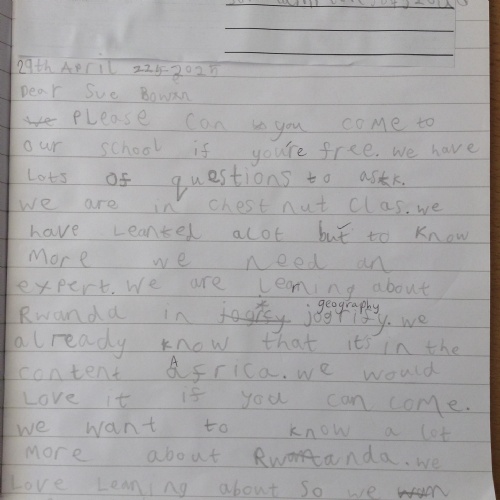 29th April 2025
Dear Sue Bowen
we Please can you come to
our school if you're free. we have
Lots of questions to ask.
we are in chestnut Clas. we
have Leanted alot but to know
More we need an
expert. we are Leaning about
geography
Rwanda in jogrify. we
already know that it's in the
content Africa. we would
Love it if you can come.
we want to know a lot
More about Rwanda. we
Love Leaning about so we